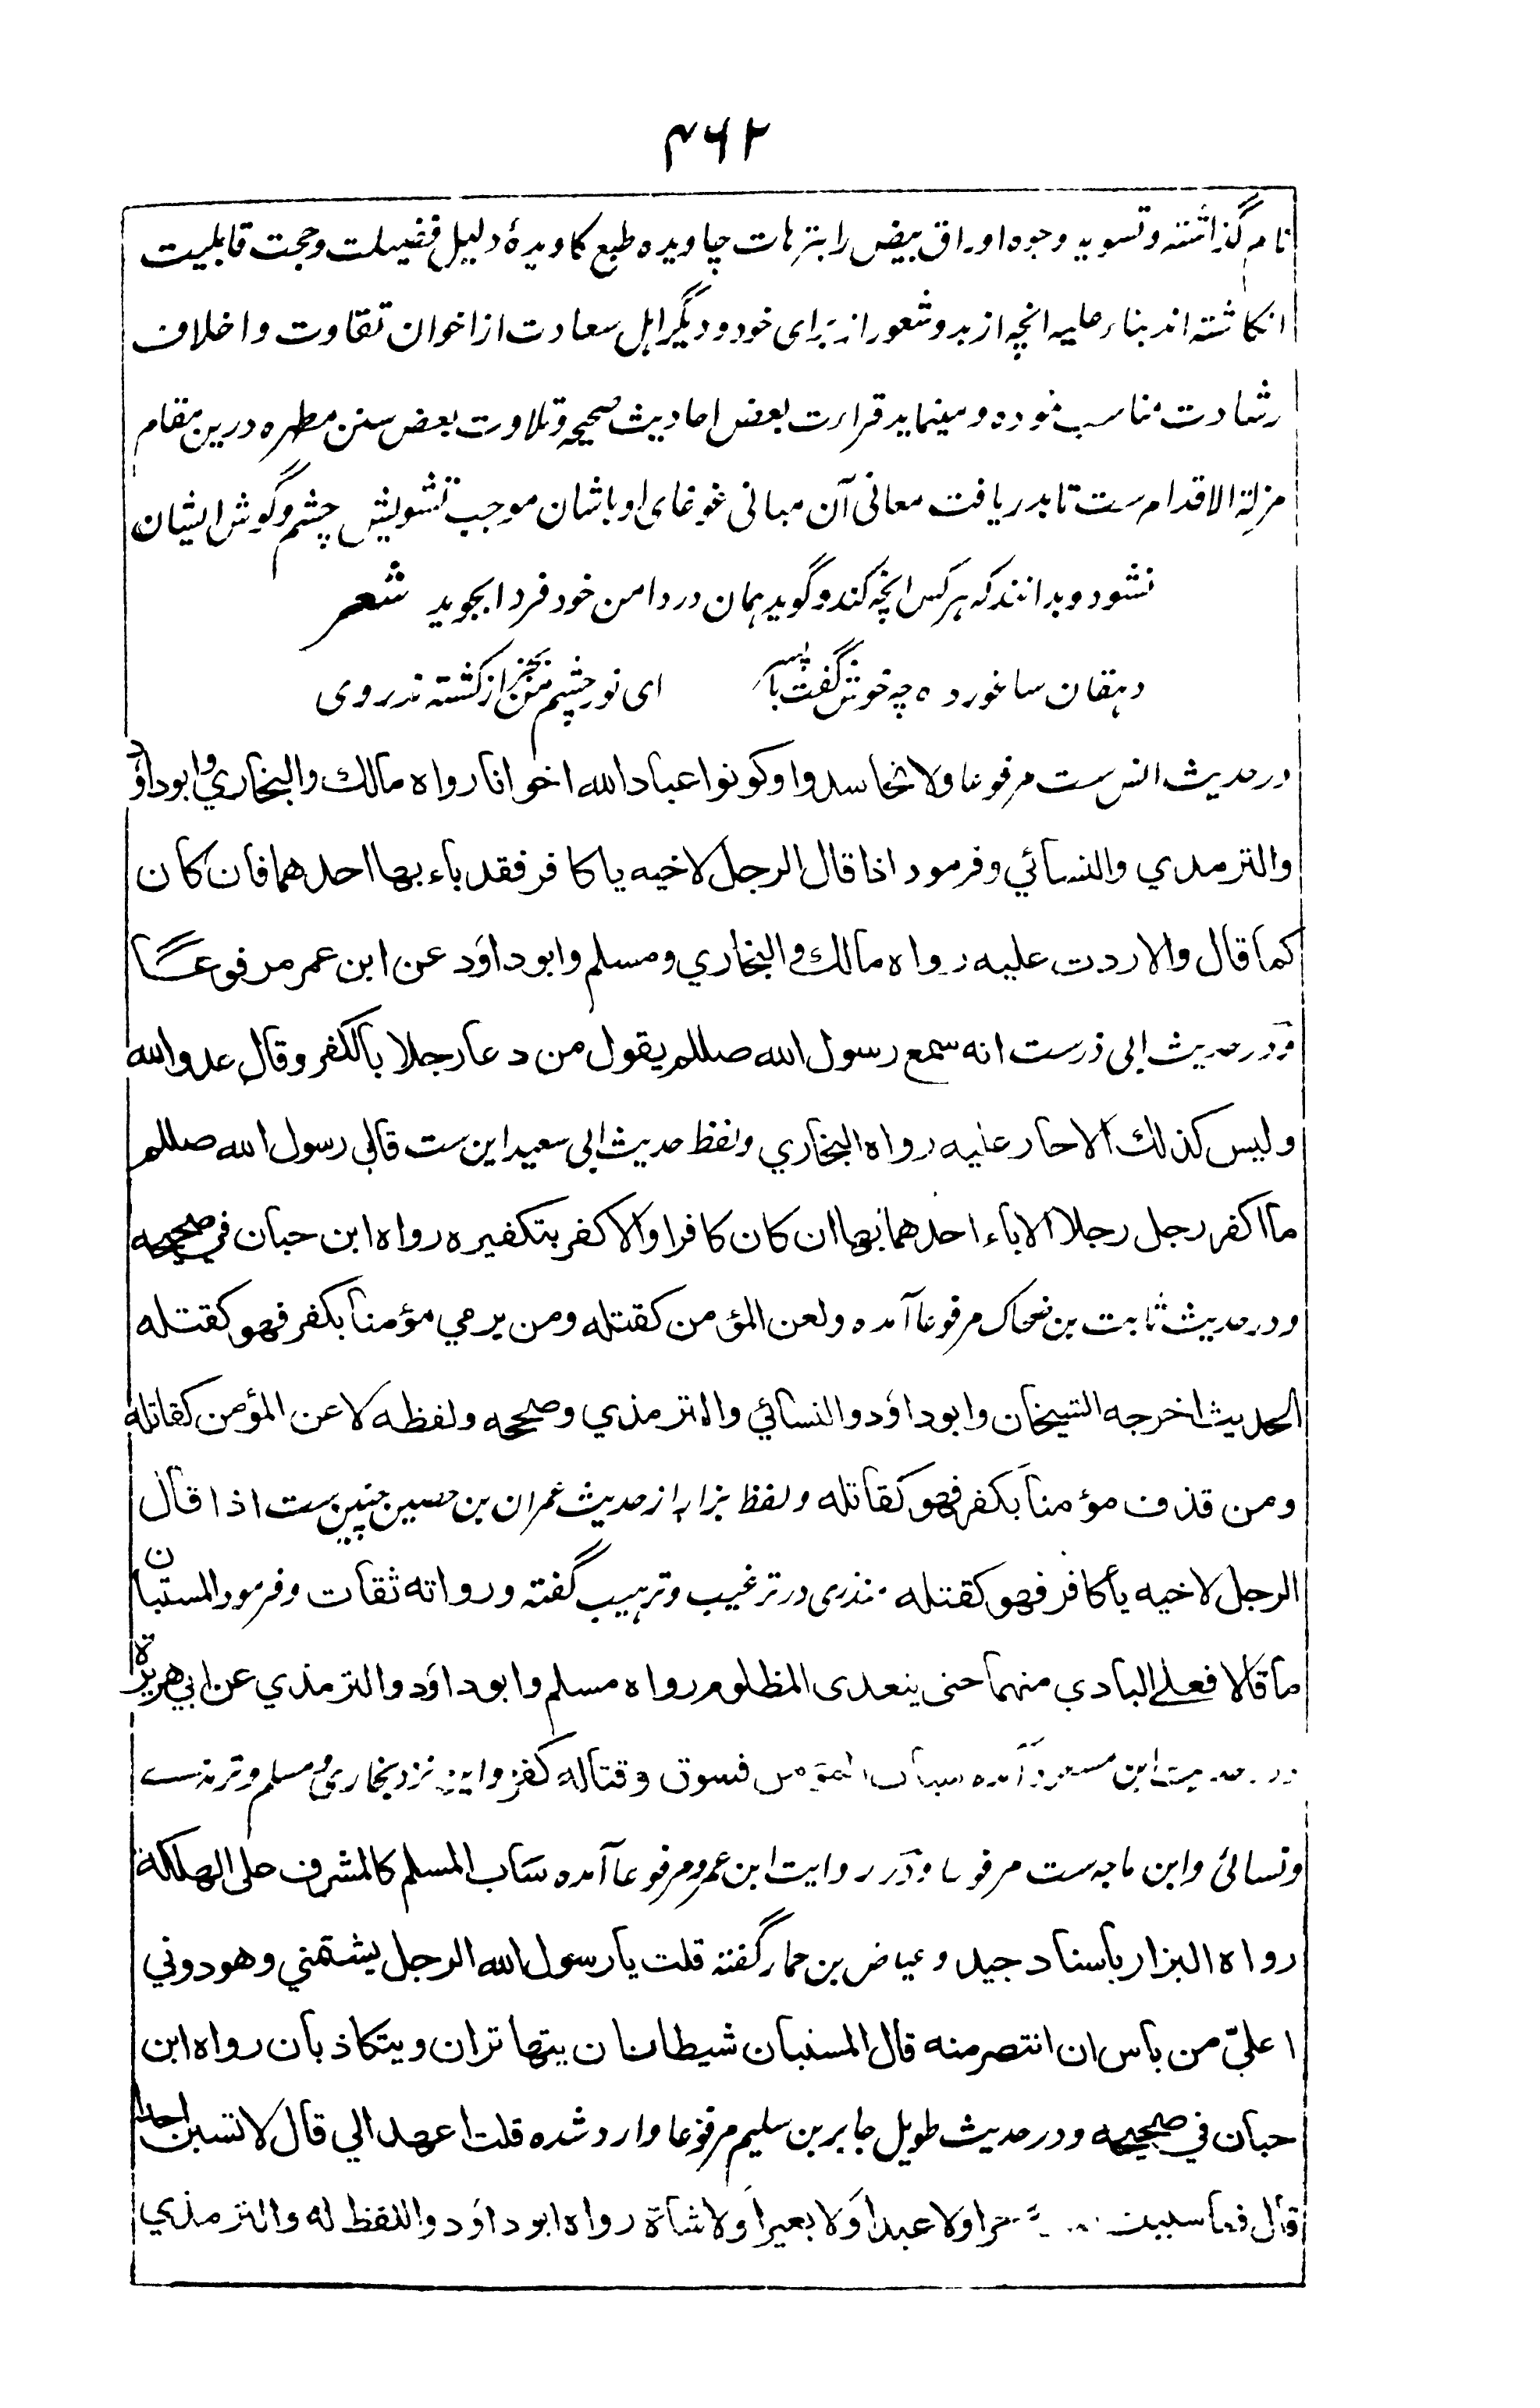 ۴۶۲
نام گذاشته و تسوید وجوه اوراق بیض را بترهات چاویده طبع کاویدهٔ دلیل فضیلت و حجت قابلیت
انکاشته اند بناء علیه انچه از بدو شعور از برای خود و دیگر اهل سعادت از اخوان تقاوت و اخلاف
رشادت مناسب نموده و مینماید قراءت بعض احادیث صحیحه و تلاوت بعض سنن مطهره درین مقام
مزلة الاقدام ست تا بدریافت معانی آن مبانی غوغای اوباشان موجب تشویش چشم و گوش ایشان
نشود و بدانند که هر کس انچه کند و گوید همان در دامن خود فردا بجوید شعر
دهقان سالخورده چه خوش گفت با پسر ای نور چشم من بجز از کشته ندروی
در حدیث انس ست مرفوعا ولا تحاسدوا وکونوا عباد الله اخوانا رواه مالك والبخاري وابو داؤد
والترمذي والنسائي و فرمود اذا قال الرجل لاخيه يا كافر فقد باء بها احدهما فان كان
كما قال والا ردت عليه رواه مالك والبخاري ومسلم وابو داؤد عن ابن عمر مرفوعا
و در حدیث ابی ذرست انه سمع رسول الله صللم يقول من دعا رجلا بالكفر وقال عدو الله
وليس كذلك الا حار عليه رواه البخاري و لفظ حدیث ابی سعید این ست قال رسول الله صللم
ما اكفر رجل رجلا الا باء احدهما بها ان كان كافرا والا كفر بتكفيره رواه ابن حبان في صحيحه
و در حدیث ثابت بن ضحاک مرفوعا آمده ولعن المؤمن كقتله ومن يرمي مؤمنا بكفر فهو كقتله
الحديث اخرجه الشيخان وابو داؤد والنسائي والترمذي وصححه ولفظه لاعن المؤمن كقاتله
ومن قذف مؤمنا بكفر فهو كقاتله و لفظ بزار از حدیث عمران بن حصین چنین ست اذا قال
الرجل لاخيه يا كافر فهو كقتله منذری در ترغیب و ترهیب گفته ورواته ثقات و فرمود المستبان
ما قالا فعلى البادي منهما حتى يتعدى المظلوم رواه مسلم وابو داؤد والترمذي عن ابي هريرة
و در حدیث ابن مسعود آمده سباب المؤمن فسوق وقتاله كفر و این نزد بخاری و مسلم و ترمذی
و نسائی و ابن ماجه ست مرفوعا و در روایت ابن عمرو مرفوعا آمده سباب المسلم كالمشرف على الهلكة
رواه البزار باسناد جيد و عیاض بن حمار گفته قلت يا رسول الله الرجل يشتمني وهو دوني
اعليّ من باس ان انتصر منه قال المستبان شيطانان يتهاتران ويتكاذبان رواه ابن
حبان في صحيحه و در حدیث طویل جابر بن سلیم مرفوعا وارد شده قلت اعهد الي قال لا تسبن احدا
قال فما سببت حرا ولا عبدا ولا بعيرا ولا شاة رواه ابو داؤد واللفظ له والترمذي